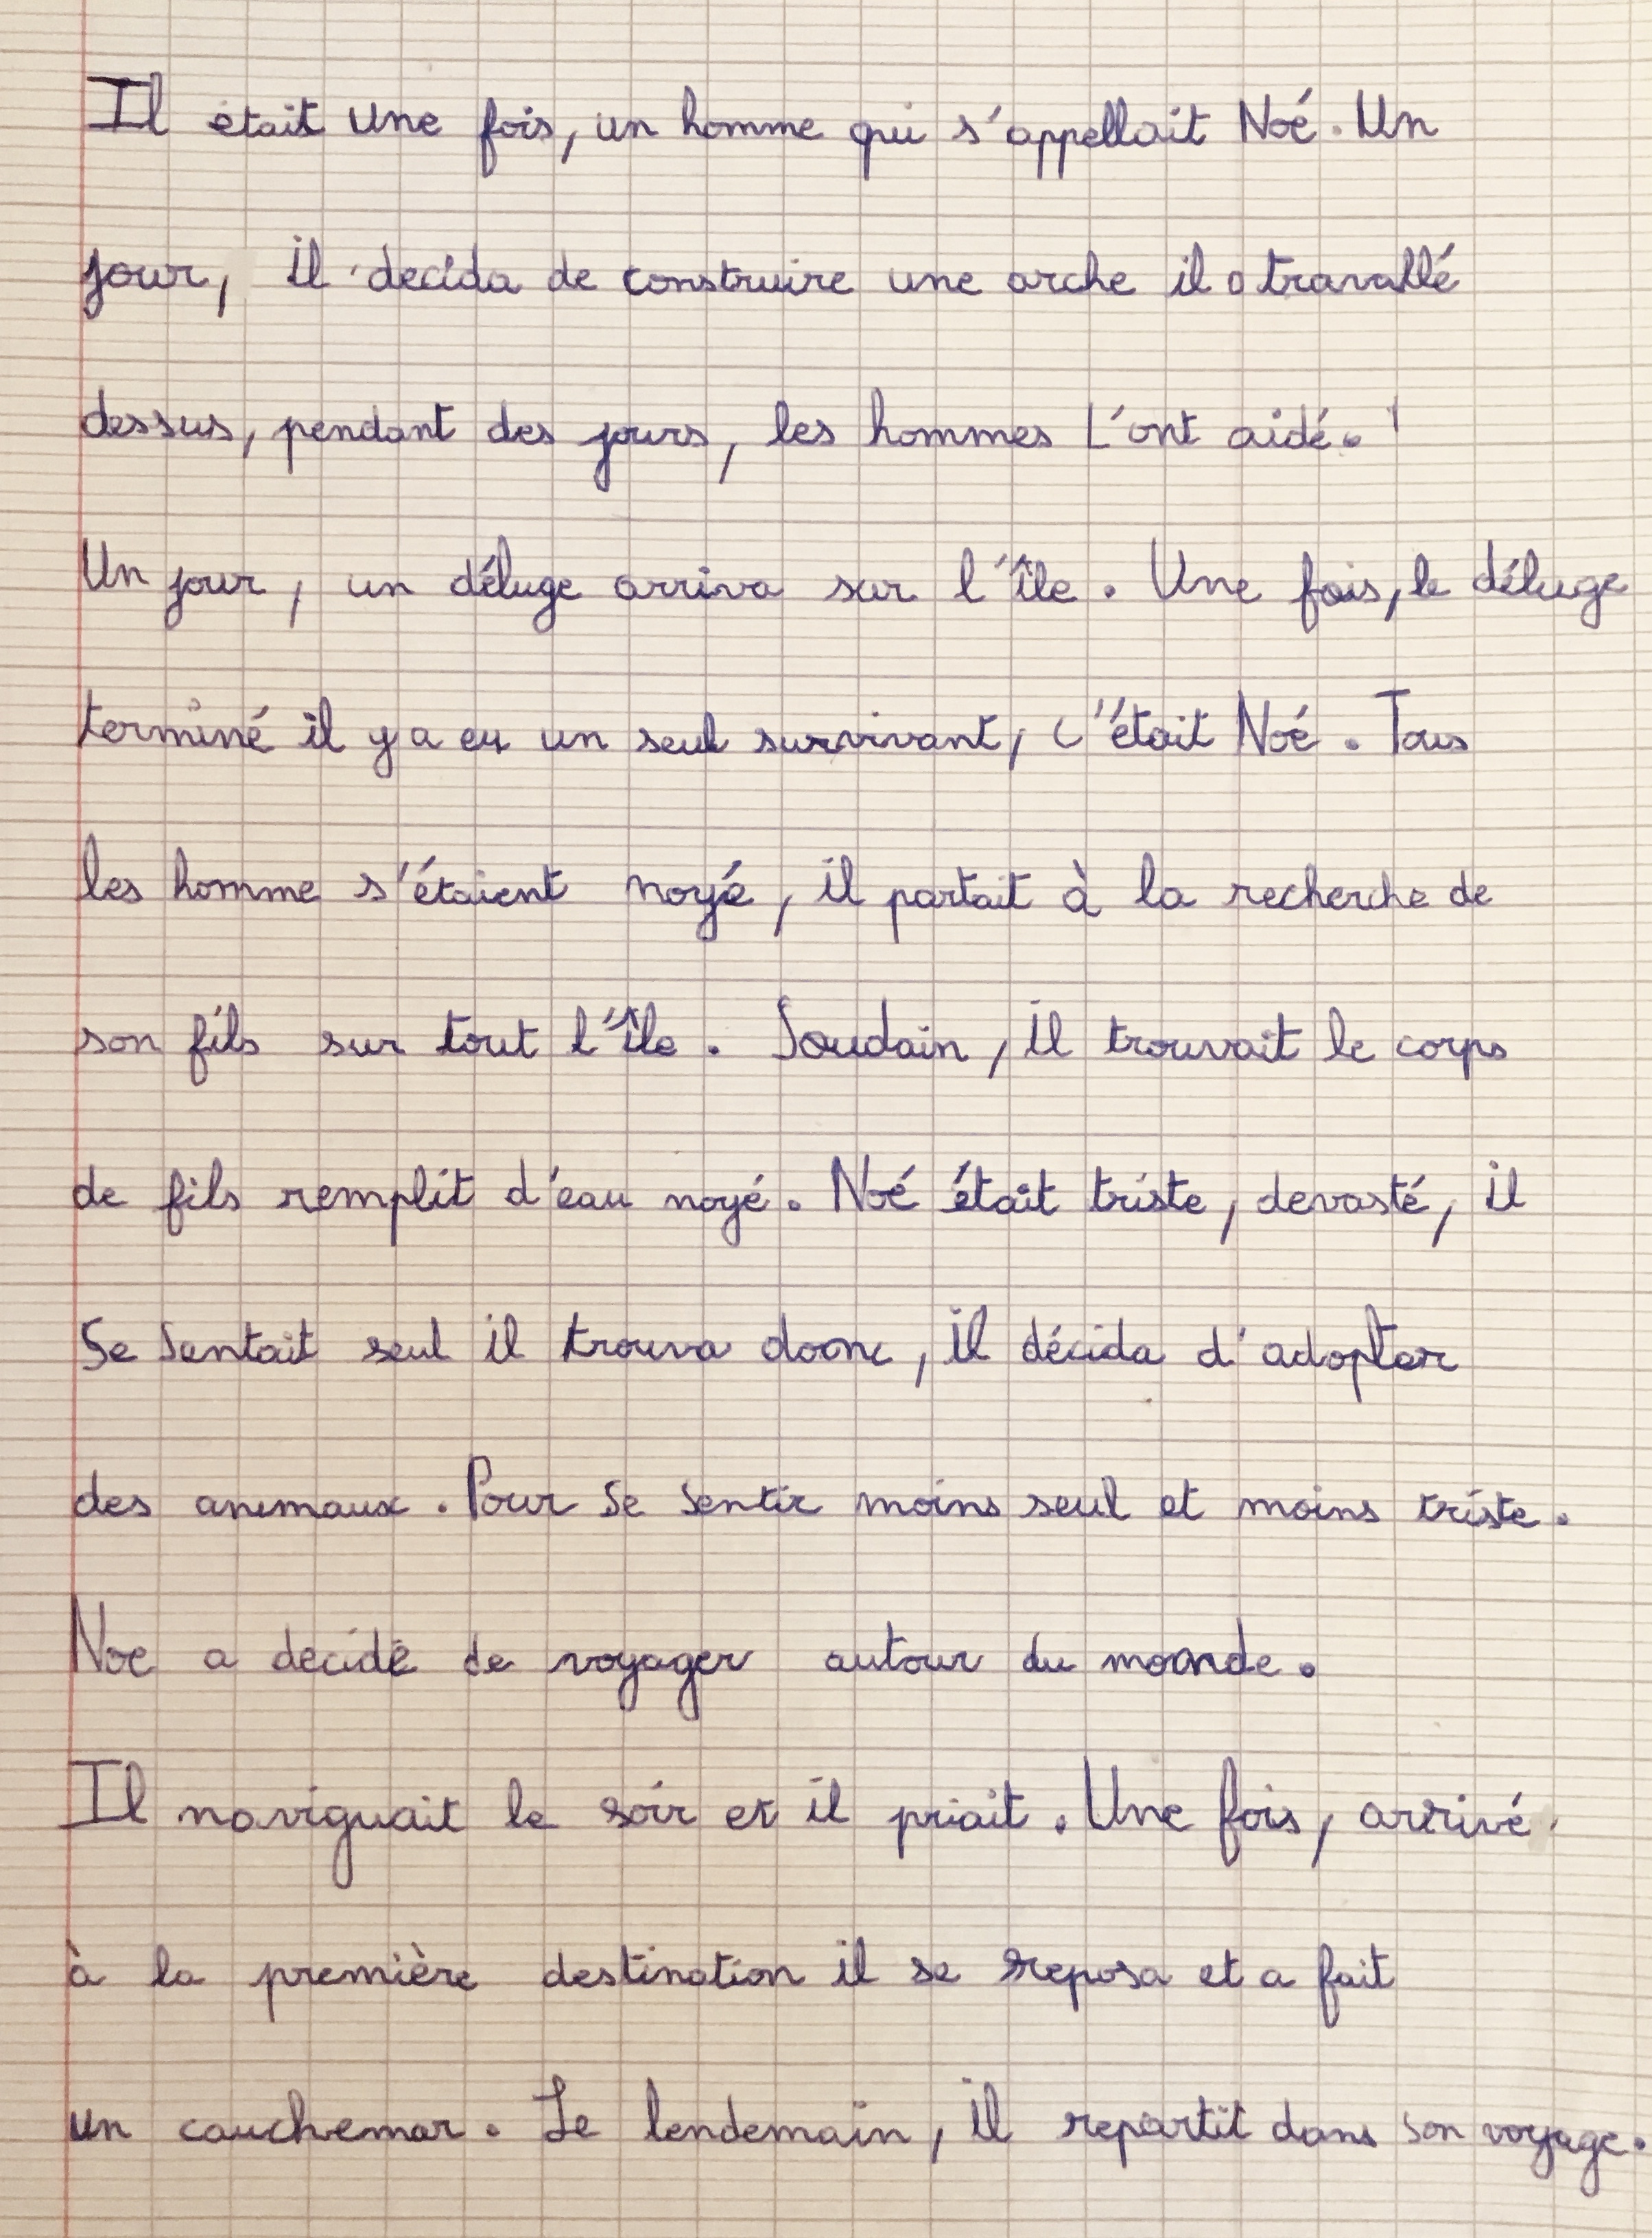 Il était une fois, un homme qui s'appellait Noé. Un
jour, il decida de construire une arche il a travallé
dessus, pendant des jours, les hommes L'ont aidé.
Un jour, un déluge arriva sur l'île. Une fois, le déluge
terminé il y a eu un seul survivant, c'était Noé. Tous
les homme s'étaient noyé, il partait à la recherche de
son fils sur tout l'île. Soudain, il trouvait le corps
de fils remplit d'eau noyé. Noé était triste, devasté, il
Se Sentait seul il trouva donc, il décida d'adopter
des animaux. Pour Se Sentir moins seul et moins triste.
Noe a decidé de voyager autour du monde.
Il naviguait le soir et il priait. Une fois, arrivé
à la première destination il se reposa et a fait
un cauchemar. Le lendemain, il repartit dans son voyage.